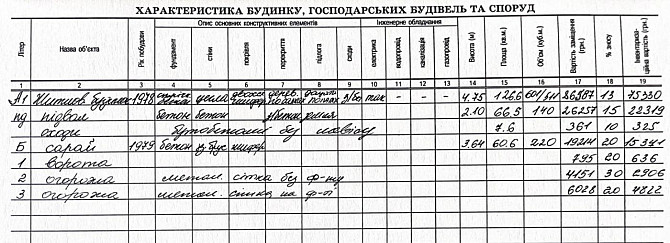 ХАРАКТЕРИСТИКА БУДИНКУ, ГОСПОДАРСЬКИХ БУДІВЕЛЬ ТА СПОРУД
Літер Назва об'єкта Рік побудови Опис основних конструктивних елементів Інженерне обладнання Висота (м) Площа (кв.м.) Об'єм (куб.м.) Вартість заміщення (грн.) % зносу Інвентариза-ційна вартість (грн.)
фундамент стіни покрівля перекриття підлога сходи електрика водопровід каналізація газопровід
1 2 3 4 5 6 7 8 9 10 11 12 13 14 15 16 17 18 19
А1 Житлов. будинок 1978 з/бо так - - - 4.75 126.6 601/541 86587 13 75330
пд підвал бетон бетон з/бетон 2.10 66.5 140 26257 15 22319
сходи без 7.6 361 10 325
Б сарай 1979 бетон шифер 3.64 60.6 220 19214 20 15371
1 ворота 795 20 636
2 огорожа метал. сітка без ф-ту 4151 30 2906
3 огорожа метал. сітка на ф-ті 6028 20 4822